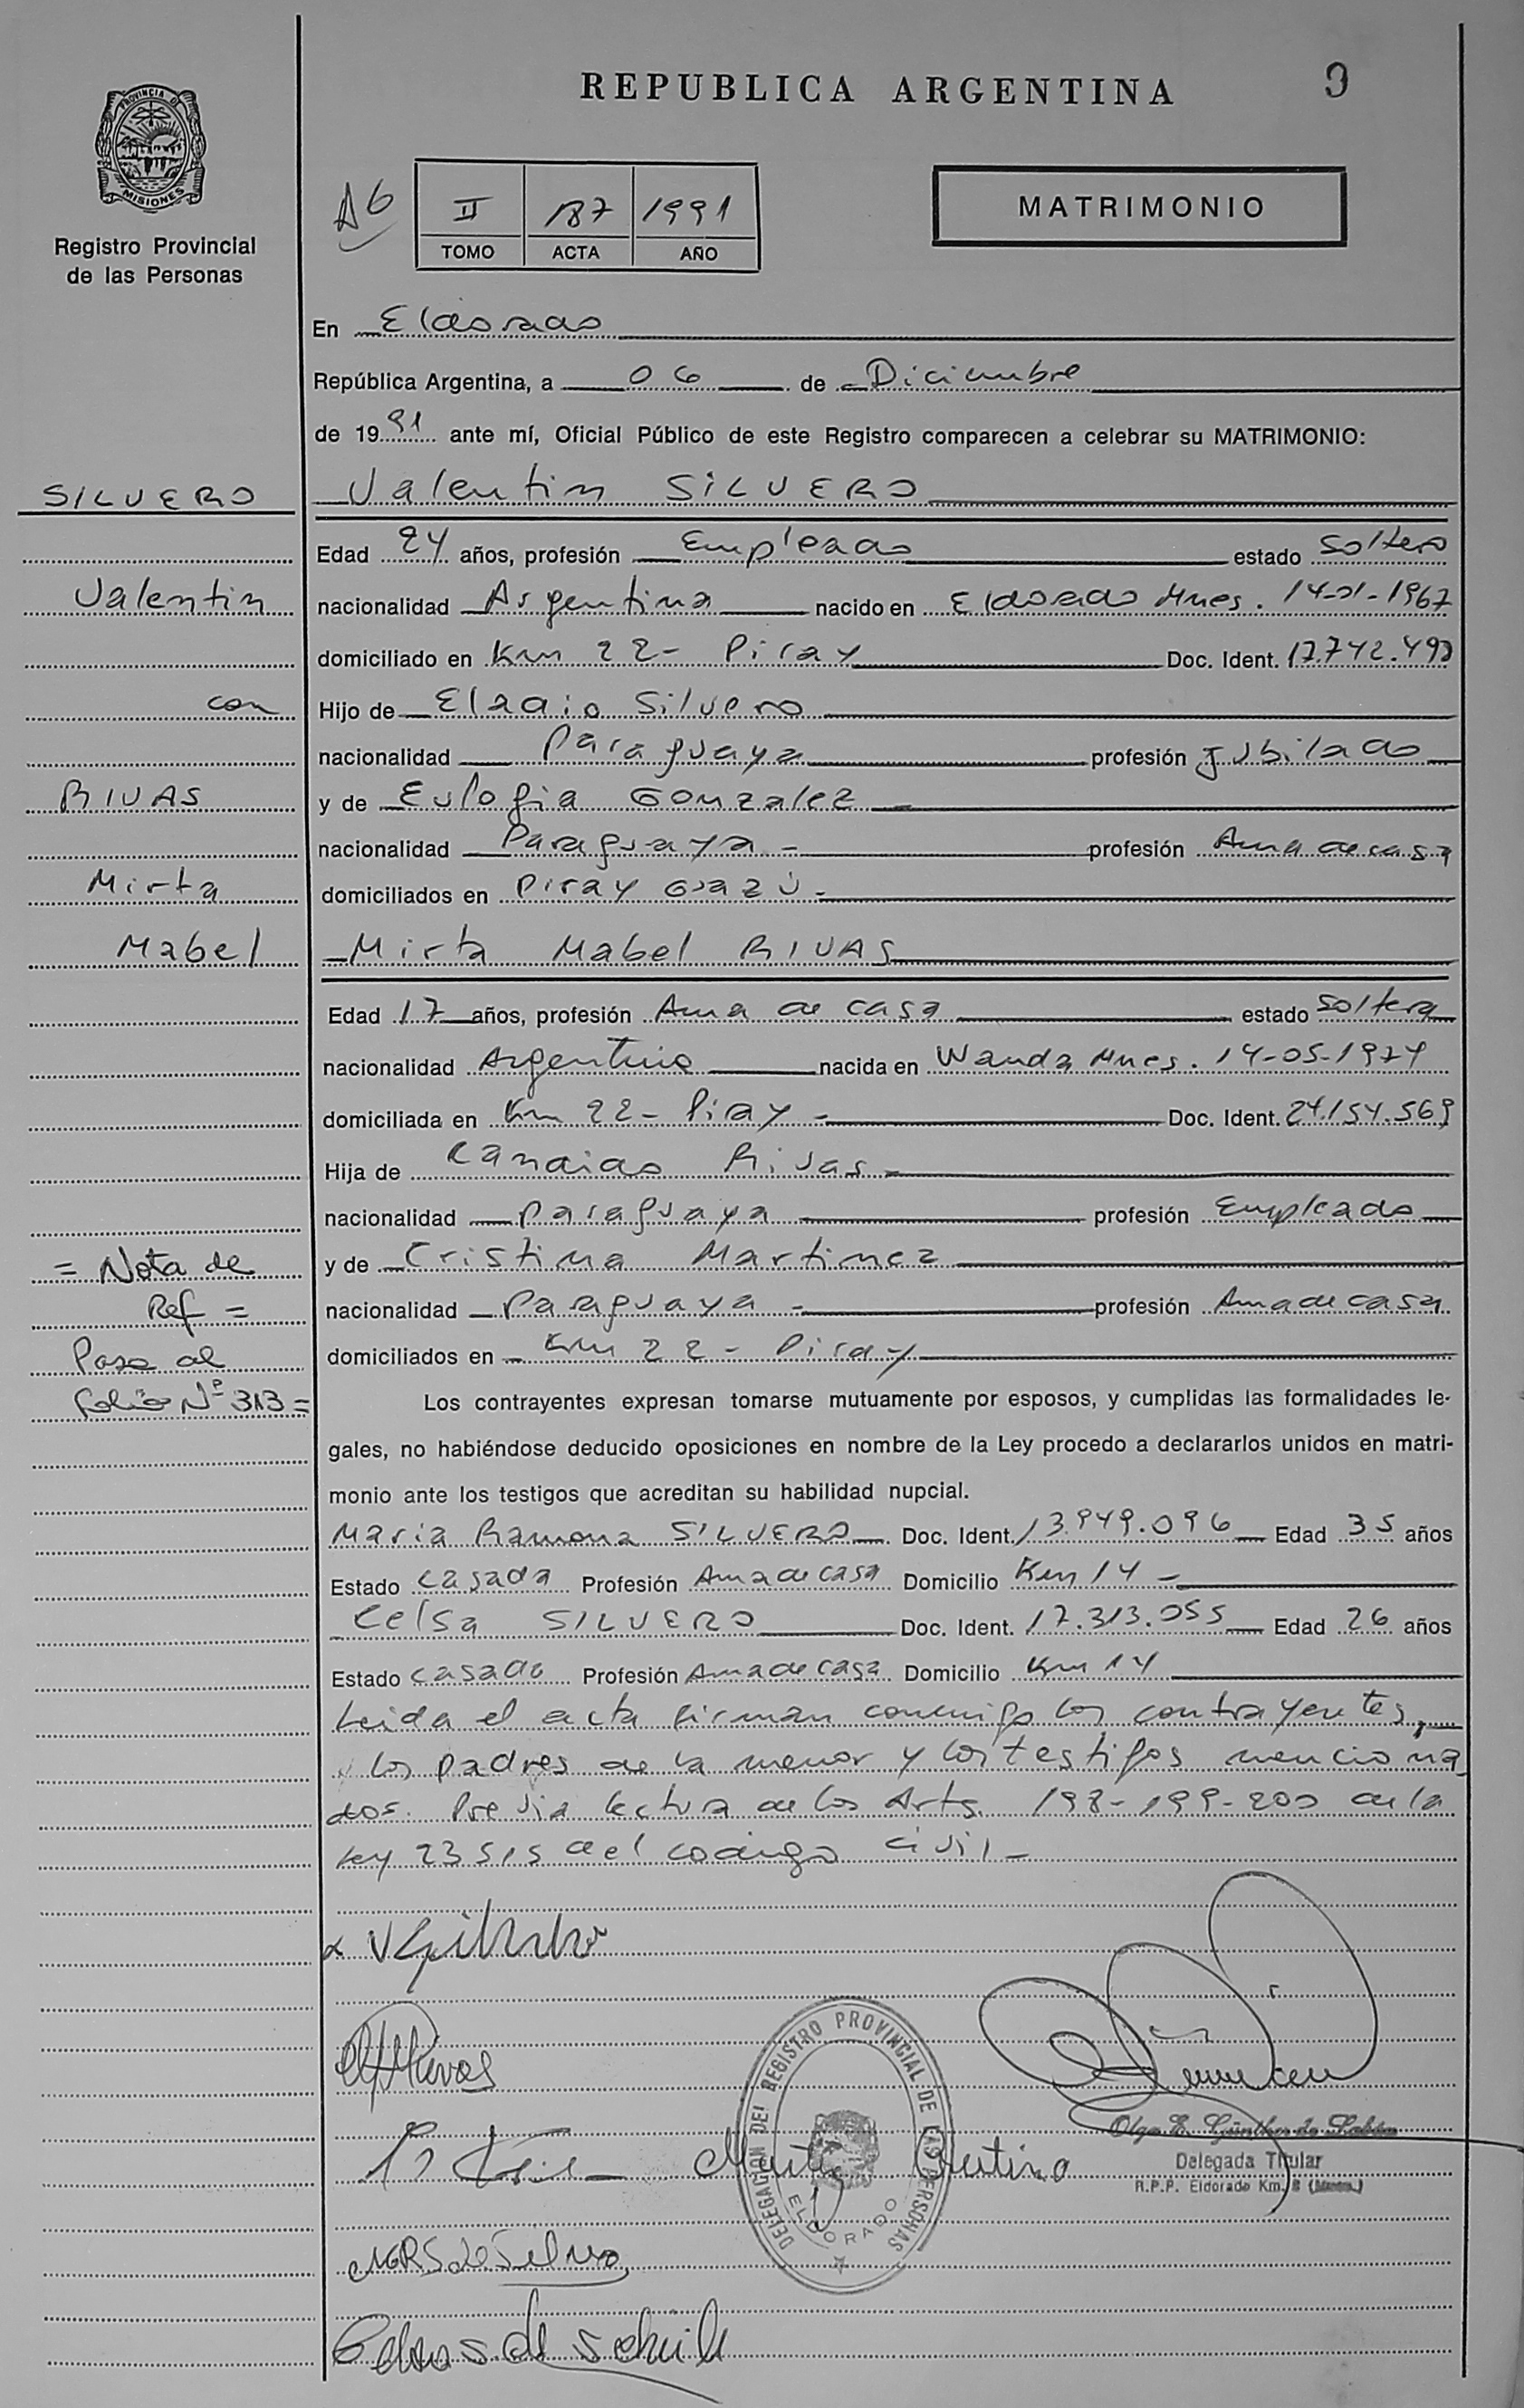 REPUBLICA ARGENTINA
PROVINCIA DE
MISIONES
Registro Provincial
de las Personas
A6
II 187 1991
TOMO ACTA AÑO
MATRIMONIO
En Eldorado
República Argentina, a 06 de Diciembre
de 1991 ante mí, Oficial Público de este Registro comparecen a celebrar su MATRIMONIO:
SILVERO
Valentin SILVERO
Edad 24 años, profesión Empleado estado Soltero
Valentin
nacionalidad Argentina nacido en Eldorado Mnes. 14-01-1967
domiciliado en Km 22- Piray Doc. Ident. 17.742.490
con
Hijo de Eladio Silvero
nacionalidad Paraguaya profesión Jubilado
RIVAS
y de Eulogia Gonzalez
nacionalidad Paraguaya - profesión Ama de casa
Mirta
domiciliados en Piray Guazú -
Mabel
Mirta Mabel RIVAS
Edad 17 años, profesión Ama de casa estado Soltera
nacionalidad Argentina nacida en Wanda Mnes. 14-05-1974
domiciliada en Km 22- Piray - Doc. Ident. 24.154.569
Hija de Candido Rivas -
nacionalidad Paraguaya profesión Empleado
= Nota de
y de Cristina Martinez
Ref =
nacionalidad Paraguaya - profesión Ama de casa
Pase al
domiciliados en - Km 22 - Piray
Folio Nº 313 =
Los contrayentes expresan tomarse mutuamente por esposos, y cumplidas las formalidades le-
gales, no habiéndose deducido oposiciones en nombre de la Ley procedo a declararlos unidos en matri-
monio ante los testigos que acreditan su habilidad nupcial.
Maria Ramona SILVERO Doc. Ident. 13.949.096 Edad 35 años
Estado Casada Profesión Ama de casa Domicilio Km 14 -
Celsa SILVERO Doc. Ident. 17.313.055 Edad 26 años
Estado Casada Profesión Ama de casa Domicilio Km 14
Leida el acta firman conmigo los contrayentes,
los padres de la menor y los testigos menciona
dos. Previa lectura de los Arts. 198-199-200 de la
Ley 23515 del codigo civil -
Rivas
DELEGACION DEL REGISTRO PROVINCIAL DE LAS PERSONAS
ELDORADO
Olga E. Günther de
Delegada Titular
R.P.P. Eldorado Km. 8
Cristina